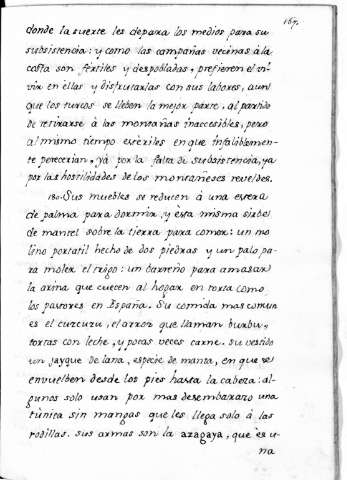 167.
donde la suerte les depara los medios para su
subsistencia: y como las campañas vecinas à la
costa son fértiles y despobladas, prefieren el vi-
vir en ellas y disfrutarlas con sus labores, aun
que los turcos se lleben la mejor parte, al partido
de retirarse à las montañas inaccesibles, pero
al mismo tiempo estèriles en que infaliblemen-
te perecerian, yà por la falta de subsistencia, ya
por las hostilidades de los montañeses reveldes.
180. Sus muebles se reducen à una estera
de palma para dormir, y èsta misma sirbe
de mantel sobre la tierra para comer: un mo
lino portatil hecho de dos piedras y un palo pa-
ra moler el trigo: un barreño para amasar
la arina que cuecen al hogar en torta como
los pastores en España. Su comida mas comun
es el curcuzu, el arroz que llaman burbu,
tortas con leche, y pocas veces carne. su vestido
un jayque de lana, especie de manta, en que se
envuelben desde los pies hasta la cabeza: al-
gunos solo usan por mas desembarazo una
tùnica sin mangas que les llega solo à las
rodillas. sus armas son la azagaya, que es u-
na